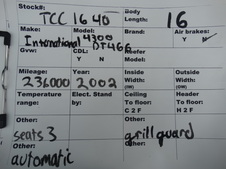 Stock#: TCC 1640 Body Length: 16
Make: International Model: 4300 DT466 Brand: Air brakes: Y N
Gvw: CDL: Y N Reefer Model:
Mileage: 236000 Year: 2,002 Inside Width: Outside Width:
Temperature range: Elect. Stand by: Ceiling To floor: C 2 F Header To floor: H 2 F
Other: seats 3 Other: grill guard
Other: automatic